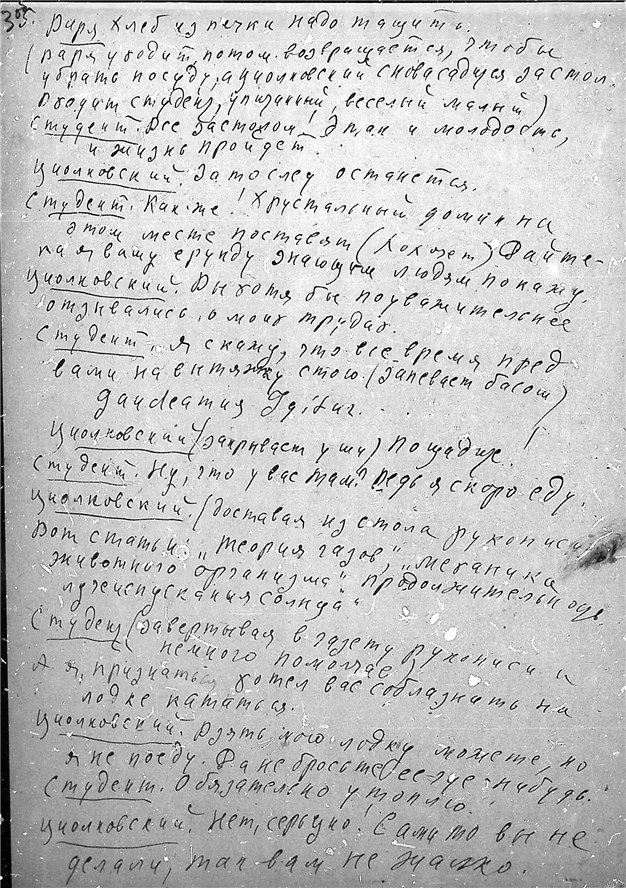 Варя. Хлеб из печки надо тащить.
(Варя уходит, потом возвращается, чтобы
убрать посуду, а Циолковский снова садится за стол.
Входит студент, упитанный, веселый малый)
Студент. Все за столом. Этак и молодость,
и жизнь пройдет.
Циолковский. Зато след останется.
Студент. Как же! Хрустальный домик на
этом месте поставят (хохочет) Дайте-
ка я вашу ерунду знающим людям покажу.
Циолковский. Вы хотя бы поуважительнее
отзывались о моих трудах.
Студент. Я скажу, что все время пред
вами на вытяжку стою. (запевает басом)
Gaudeamus Igitur...
Циолковский (закрывает уши) Пощадите!
Студент. Ну, что у вас там? Ведь я скоро еду.
Циолковский. (доставая из стола рукописи)
Вот статьи: „Теория газов", „Механика
животного организма" „Продолжительность
лучеиспускания солнца"
Студент (завертывая в газету рукописи и
немного помолчав)
А я, признаться хотел вас соблазнить на
лодке кататься.
Циолковский. Взять мою лодку можете, но
я не поеду. Да не бросьте ее где-нибудь.
Студент. Обязательно утоплю!
Циолковский. Нет, серьезно. Сами то вы не
делали, так вам не жалко.